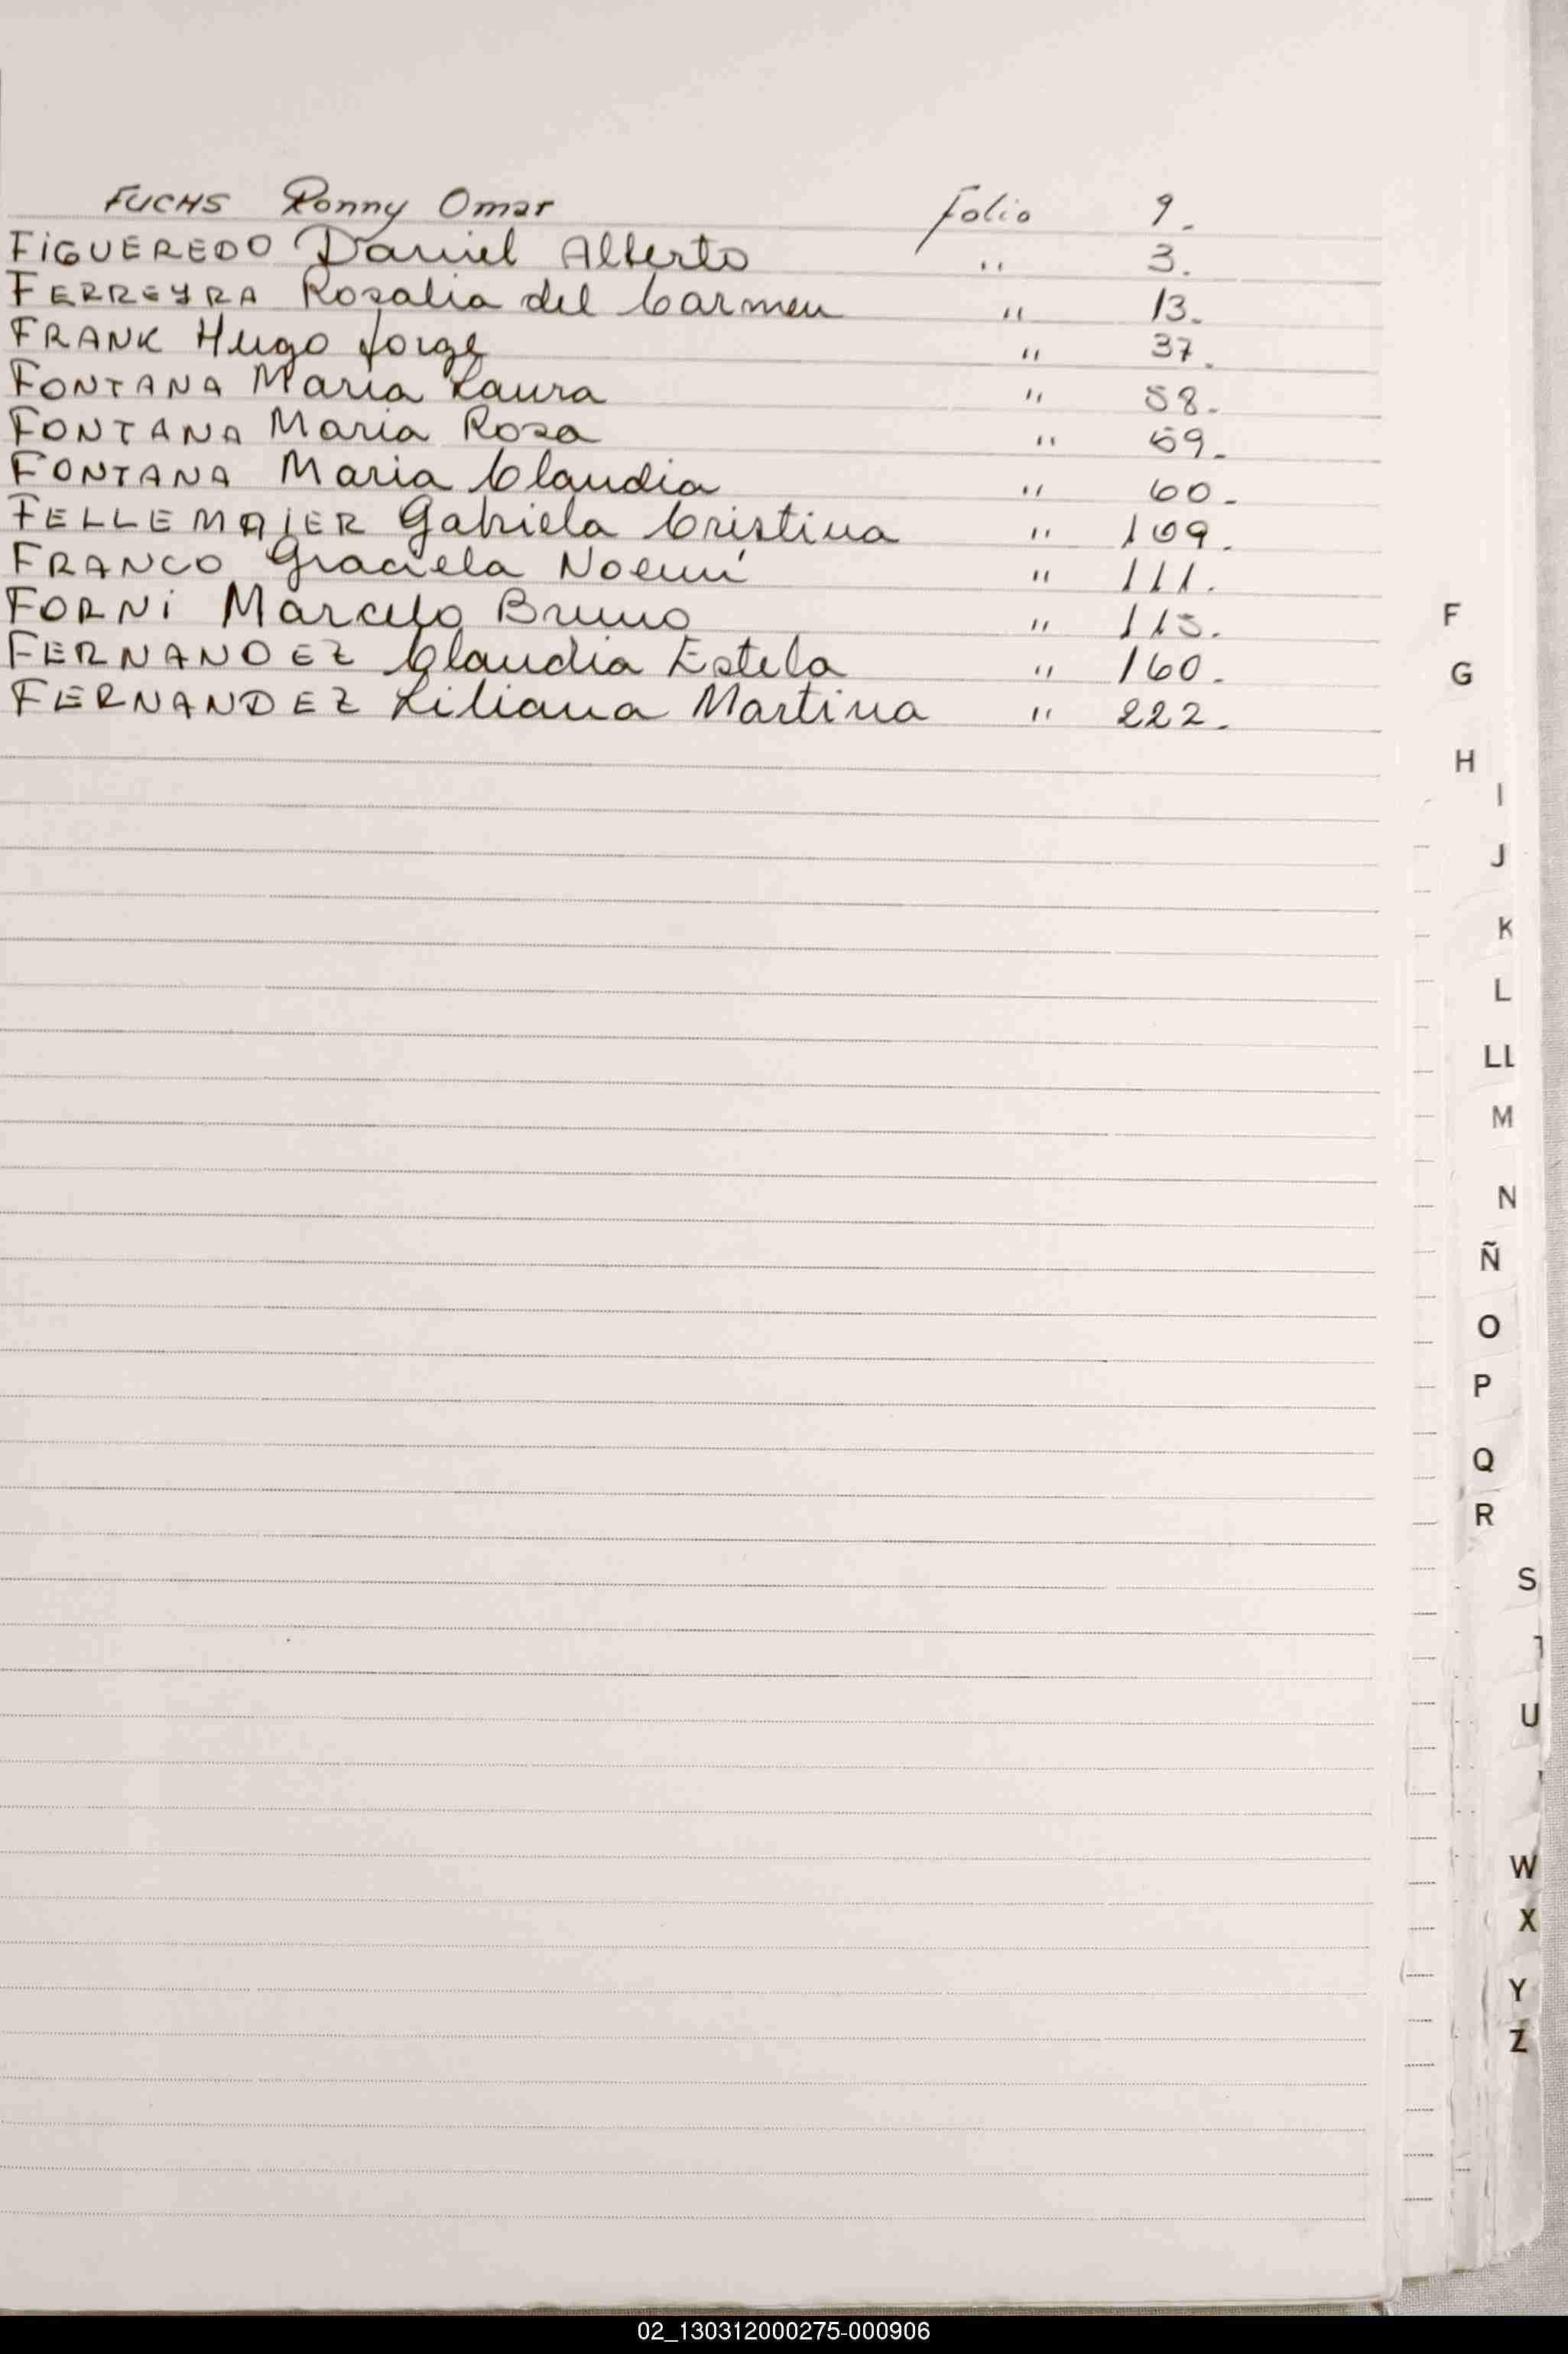 FUCHS Ronny Omar folio 9.
FiGUEREDO Daniel Alberto " 3.
FERREYRA Rosalia del Carmen " 13.
FRANK Hugo Jorge " 37.
FONTANA Maria Laura " 58.
FONTANA Maria Rosa " 59.
FONTANA Maria Claudia " 60.
FELLEMAIER Gabriela Cristina " 109.
FRANCO Graciela Noemí " 111.
FORNi Marcelo Bruno " 115.
FERNANDEZ Claudia Estela " 160.
FERNANDEZ Liliana Martina " 222.
F
G
H
I
J
K
L
LL
M
N
Ñ
O
P
Q
R
S
U
W
X
Y
Z
02_130312000275-000906